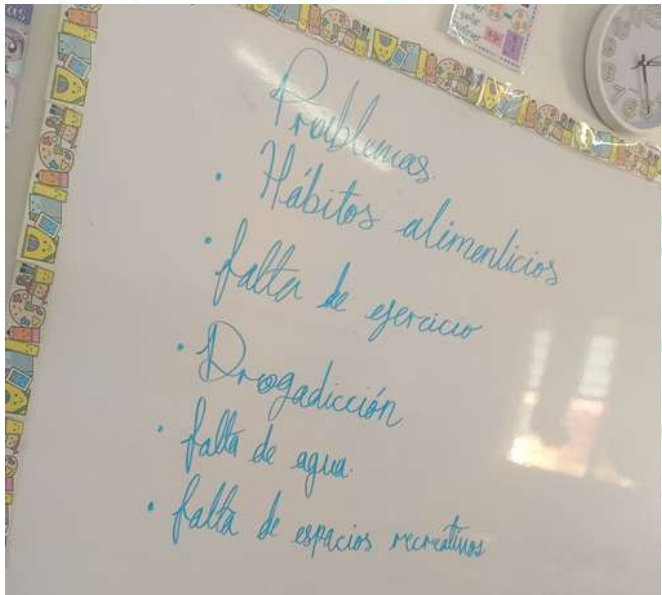 Problemas.
• Hábitos alimenticios
• falta de ejercicio
• Drogadicción
• falta de agua.
• falta de espacios recreativos